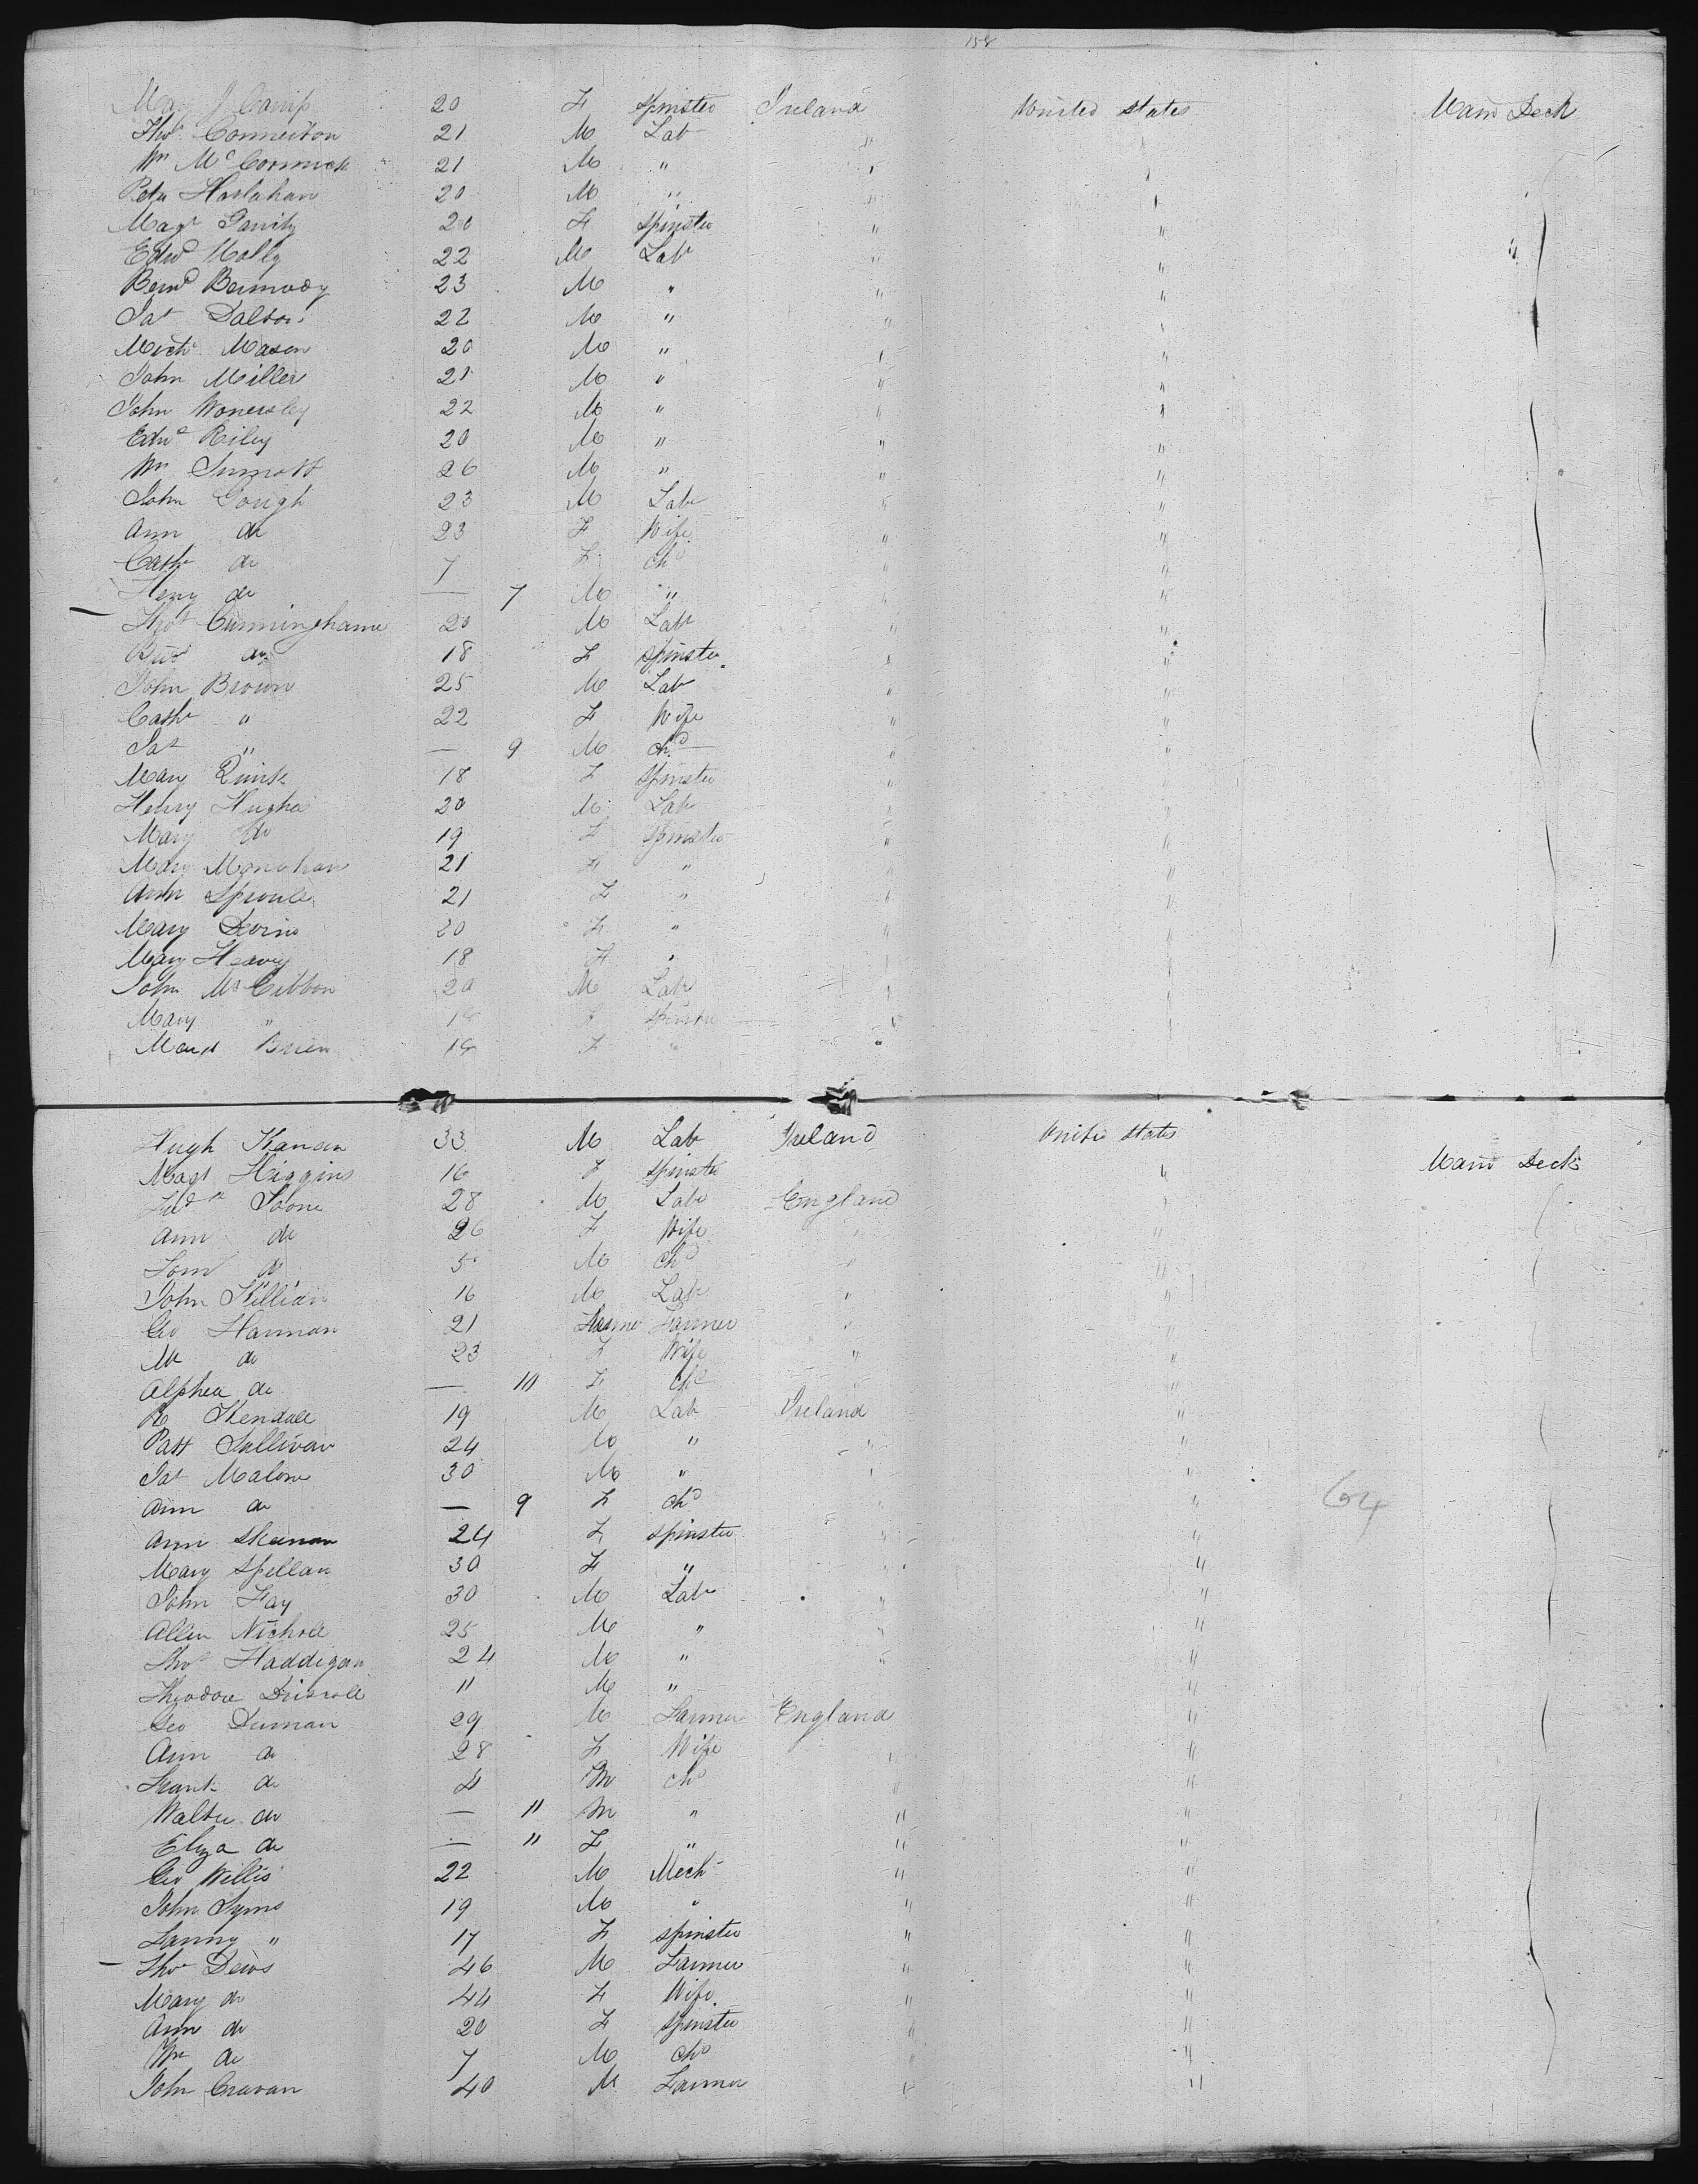 158
Mary J Camp 20 F Spinster Ireland United States Main Deck
Thos Conneiton 21 M Lab " "
Wm McCormick 21 M " " "
Peter Haslahan 20 M " " "
Magt Garrity 20 F Spinster " "
Edwd Molly 22 M Lab " " "
Bernd Bermody 23 M " " "
Pat Dalton 22 M " " "
Mich Mason 20 M " " "
John Miller 21 M " " "
John Wonersley 22 M " " "
Edwd Riley 20 M " " "
Wm 26 M " " "
John Gough 23 M Lab " "
Ann do 23 F Wife " "
Cath do 7 F chd " "
Heny do — 7 M " " "
Thos Cunninghame 20 M Lab " "
do 18 F Spinster " "
John Brown 25 M Lab " "
Cath " 22 F Wife " "
Pat " — 9 M chd " "
Mary Quirk 18 F Spinster " "
Henry Hughes 20 M Lab " "
Mary do 19 F Spinster " "
Mary Monohan 21 F " " "
Ann Sproule 21 F " " "
Mary Devine 20 F " " "
Mary Heavey 18 F " " "
John McGibbon 20 M Lab " "
Mary " 18 F Spinster " "
Brien F " "
Hugh Kanan 33 M Lab Ireland United States
Magt Higgins 16 F Spinster " Main Deck
Soone 28 M Lab England "
Ann do 26 F Wife " "
Tom do 5 M chd " "
John Killian 16 M Lab " "
Geo Harman 21 Farmer " "
M do 23 F Wife " "
Alphea do — 10 F chd "
R Kendall 19 M Lab Ireland "
Patt Sullivan 24 M " " "
Pat Malone 30 M " " "
Ann do — 9 F chd " " 64
Ann Skeenan 24 F Spinster " "
Mary Spellan 30 F " " "
John Fay 30 M Lab " "
Allen Nicholl 25 M " " "
Thos Haddigan 24 M " " "
Theodore Driscoll 11 M " "
Geo Duman 29 M Farmer England "
Ann do 28 F Wife " "
Frank do 4 M chd " "
Walter do — 11 M " " "
Eliza do — 11 F " " "
Geo Willis 22 M Mech " "
John Syms 19 M " " "
Fanny " 17 F Spinster " "
Thos Dews 46 M Farmer " "
Mary do 44 F Wife " "
Ann do 20 F Spinster " "
Wm do 7 M chd " "
John Cravan 40 M Farmer " "